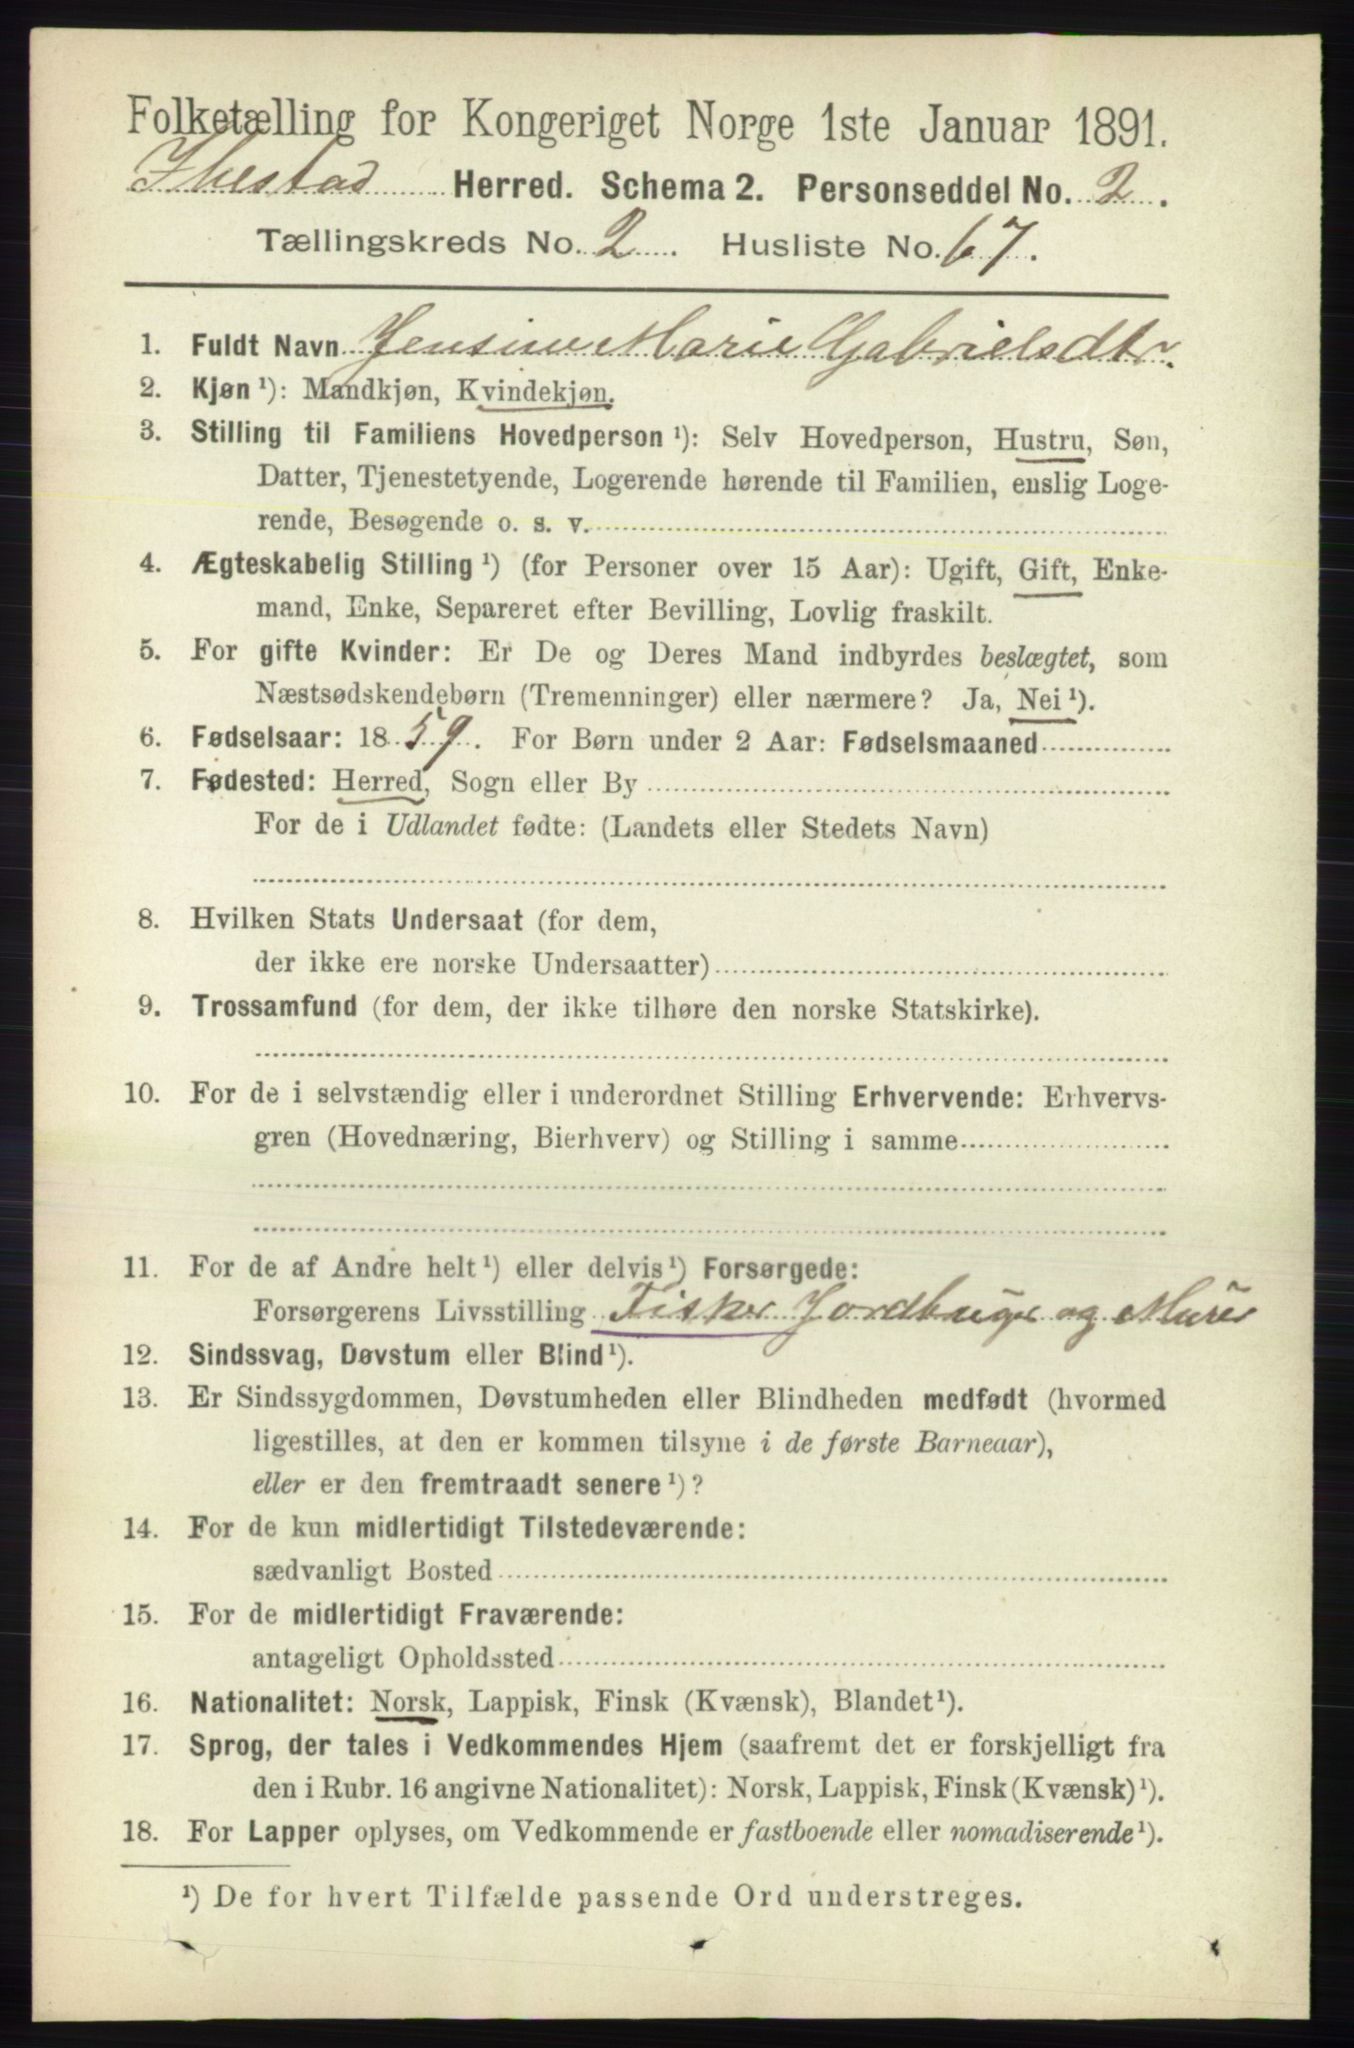 Folketælling for Kongeriget Norge 1ste Januar 1891.
Ibestad Herred. Schema 2. Personseddel No. 2.
Tællingskreds No. 2. Husliste No. 67.
1. Fuldt Navn Jensine Marie Gabrielsdtr.
2. Kjøn ¹): Mandkjøn, Kvindekjøn.
3. Stilling til Familiens Hovedperson ¹): Selv Hovedperson, Hustru, Søn,
Datter, Tjenestetyende, Logerende hørende til Familien, enslig Loge-
rende, Besøgende o. s. v.
4. Ægteskabelig Stilling ¹) (for Personer over 15 Aar): Ugift, Gift, Enke-
mand, Enke, Separeret efter Bevilling, Lovlig fraskilt.
5. For gifte Kvinder: Er De og Deres Mand indbyrdes beslægtet, som
Næstsødskendebørn (Tremenninger) eller nærmere? Ja, Nei ¹).
6. Fødselsaar: 1859. For Børn under 2 Aar: Fødselsmaaned
7. Fødested: Herred, Sogn eller By
For de i Udlandet fødte: (Landets eller Stedets Navn)
8. Hvilken Stats Undersaat (for dem,
der ikke ere norske Undersaatter)
9. Trossamfund (for dem, der ikke tilhøre den norske Statskirke).
10. For de i selvstændig eller i underordnet Stilling Erhvervende: Erhvervs-
gren (Hovednæring, Bierhverv) og Stilling i samme
11. For de af Andre helt ¹) eller delvis ¹) Forsørgede:
Forsørgerens Livsstilling Fisker Jordbruger og Murer
12. Sindssvag, Døvstum eller Blind ¹).
13. Er Sindssygdommen, Døvstumheden eller Blindheden medfødt (hvormed
ligestilles, at den er kommen tilsyne i de første Barneaar),
eller er den fremtraadt senere ¹)?
14. For de kun midlertidigt Tilstedeværende:
sædvanligt Bosted
15. For de midlertidigt Fraværende:
antageligt Opholdssted
16. Nationalitet: Norsk, Lappisk, Finsk (Kvænsk), Blandet ¹).
17. Sprog, der tales i Vedkommendes Hjem (saafremt det er forskjelligt fra
den i Rubr. 16 angivne Nationalitet): Norsk, Lappisk, Finsk (Kvænsk) ¹).
18. For Lapper oplyses, om Vedkommende er fastboende eller nomadiserende ¹).
¹) De for hvert Tilfælde passende Ord understreges.